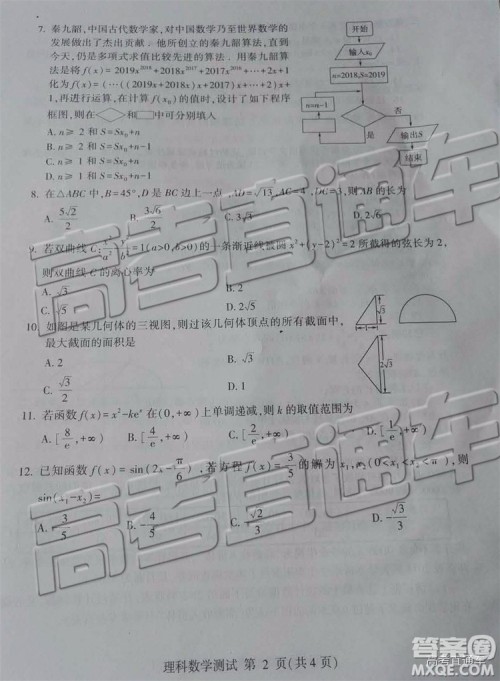 7. 秦九韶,中国古代数学家,对中国数学乃至世界数学的
发展做出了杰出贡献. 他所创立的秦九韶算法,直到
今天,仍是多项式求值比较先进的算法. 用秦九韶算
法是将f(x)=2019x²⁰¹⁸+2018x²⁰¹⁷+2017x²⁰¹⁶+…+2x+1
化为f(x)=(…((2019x+2018)x+2017)x+…+2)x+
1,再进行运算,在计算f(x₀)的值时,设计了如下程序
框图,则在◇和□中可分别填入
A. n≥2 和 S=Sx₀+n
B. n≥2 和 S=Sx₀+n-1
C. n≥1 和 S=Sx₀+n
D. n≥1 和 S=Sx₀+n-1
开始
输入x₀
n=2018,S=2019
n=n-1
否
是
输出S
结束
8. 在△ABC中,B=45°,D是BC边上一点,AD=√13,AC=4,DC=3,则AB的长为
A. 5√2/2
B. 3√6/2
C. 3√3
D. 2√6
9. 若双曲线C:x²/a²-y²/b²=1(a>0,b>0)的一条渐近线被圆x²+(y-2)²=2所截得的弦长为2,
则双曲线C的离心率为
A. √3
B. 2
C. √5
D. 2√5
10. 如图是某几何体的三视图,则过该几何体顶点的所有截面中,
最大截面的面积是
A. 2
B. √3
C. √3/2
D. 1
√3
1
2√3
11. 若函数f(x)=x²-keˣ在(0,+∞)上单调递减,则k的取值范围为
A. [8/e,+∞)
B. [4/e,+∞)
C. [2/e,+∞)
D. [1/e,+∞)
12. 已知函数f(x)=sin(2x-π/6),若方程f(x)=3/5的解为x₁,x₂(0<x₁<x₂<π),则
sin(x₁-x₂)=
A. -3/5
B. -4/5
C. -√2/3
D. -√3/3
理科数学测试 第 2 页(共4页)
高考直通车
高考直通车
高考直通车
答案圈
MXQE.COM